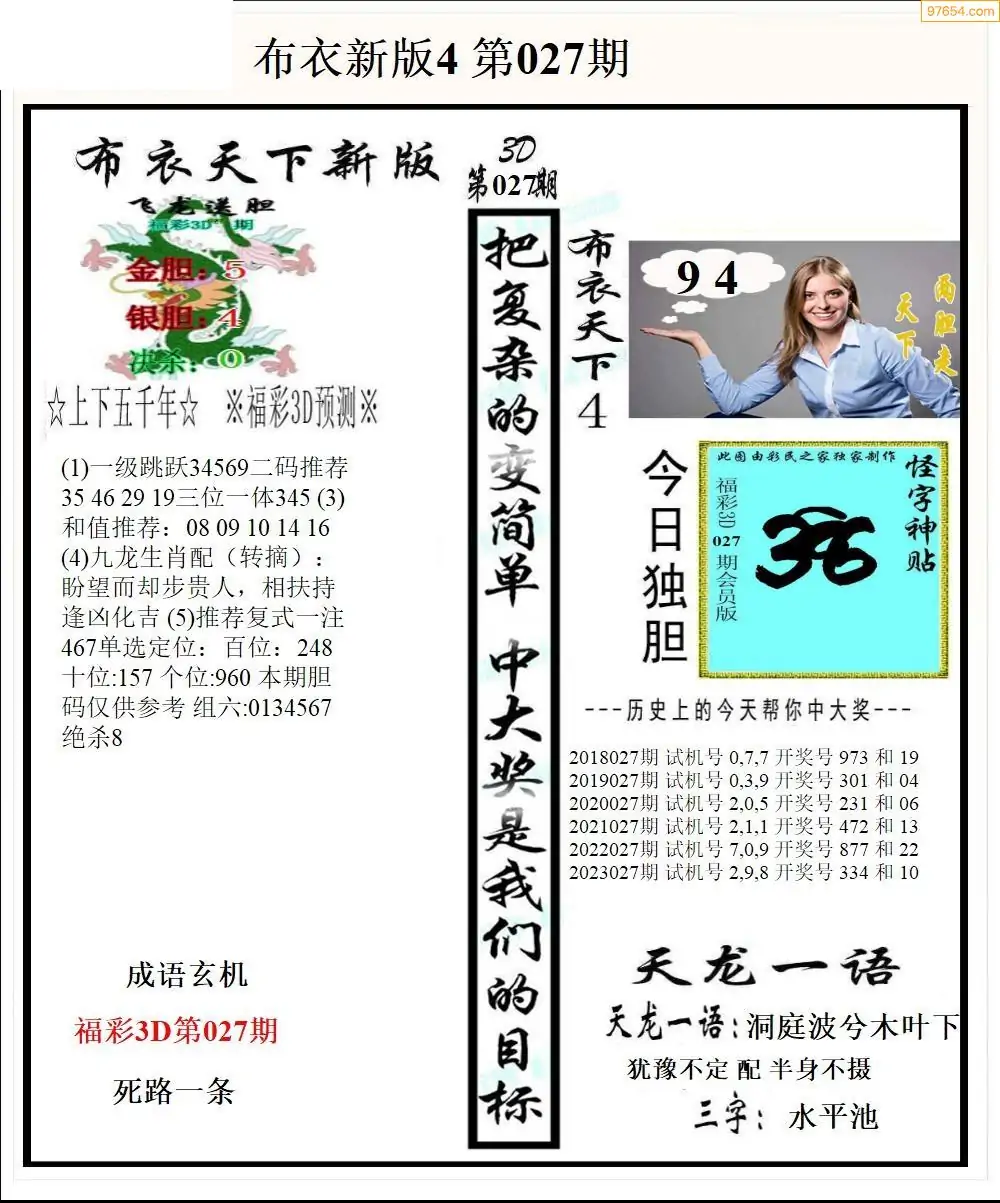 97654.com
布衣新版4 第027期
布衣天下新版
飞龙送胆
福彩3D 期
金胆：5
银胆：4
决杀：0
☆上下五千年☆ ※福彩3D预测※
(1)一级跳跃34569二码推荐
35 46 29 19三位一体345 (3)
和值推荐：08 09 10 14 16
(4)九龙生肖配（转摘）：
盼望而却步贵人，相扶持
逢凶化吉 (5)推荐复式一注
467单选定位：百位：248
十位:157 个位:960 本期胆
码仅供参考 组六:0134567
绝杀8
成语玄机
福彩3D第027期
死路一条
3D
第027期
把复杂的变简单 中大奖是我们的目标
布衣天下4
9 4
两胆走
天下
今日独胆
此图由彩民之家独家制作
怪字神贴
福彩3D 027 期会员版
---历史上的今天帮你中大奖---
2018027期 试机号 0,7,7 开奖号 973 和 19
2019027期 试机号 0,3,9 开奖号 301 和 04
2020027期 试机号 2,0,5 开奖号 231 和 06
2021027期 试机号 2,1,1 开奖号 472 和 13
2022027期 试机号 7,0,9 开奖号 877 和 22
2023027期 试机号 2,9,8 开奖号 334 和 10
天龙一语
天龙一语:洞庭波兮木叶下
犹豫不定 配 半身不摄
三字：水平池